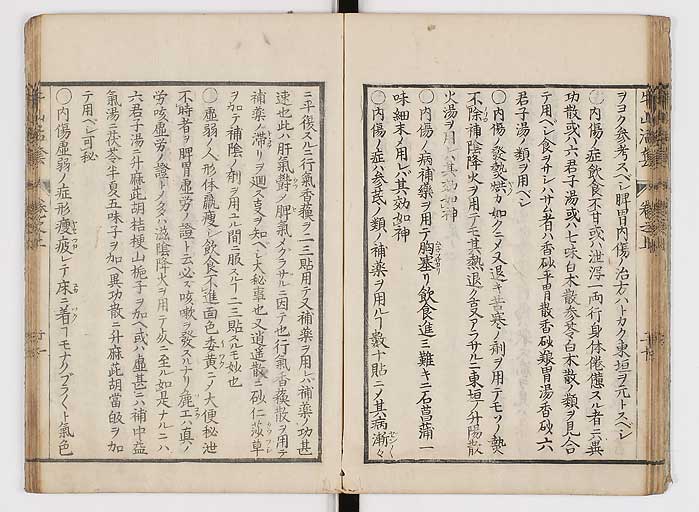 ヲヨク參考スベシ脾胃内傷ノ治方ハトカク東垣ヲ元トスベシ
〇内傷ノ症飲食不甘或ハ泄瀉一両行身体倦怠スル者ニ異
功散或ハ六君子湯或ハ七味白术散参苓白术散ノ類ヲ見合
テ用ベシ食ヲサシハサム者ハ香砂平胃散香砂養胃湯香砂六
君子湯ノ類ヲ用ベシ
〇内傷ノ發熱烘カ如クニメ又退キ苦寒ノ剤ヲ用テモソノ熱
不除補陰降火ヲ用テモ其熱退ノ見アラサルニ東垣ノ升陽散
火湯ヲ用レバ其効如神
〇内傷ノ病補藥ヲ用テ胸塞リ飲食進ミ難キニ石菖蒲一
味細末ノ用レバ其効如神
〇内傷ノ症ハ參芪ノ類ノ補藥ヲ用ルヿ数十貼ニノ其病漸々
ニ平復スルニ行氣香蘓ヲ二三貼用テ又補藥ヲ用レバ補藥ノ功甚
速也此ハ肝氣欝ノ脾氣メグラサルニ因テ也行氣香蘓散ヲ用テ
補藥ノ滞リヲ廻ス叓ヲ知ベシ大秘事也又逍遙散ニ砂仁莎草
ヲ加テ補陰ノ剤ヲ用ユル間ニ服スルヿ二三貼スルモ妙也
〇虚弱ノ人形体羸痩シ飲食不進面色委黄ニノ大便秘泄
不時者ヲ脾胃虚労ノ證ト云必ズ咳嗽ヲ發スルナリ庸工ハ真ノ
労咳虚労ノ證トノタメハ滋陰降火ヲ用テ敗ニ至ル如是ナルニハ
六君子湯ニ升麻茈胡桔梗山梔子ヲ加ヘ或ハ虚甚ニハ補中益
氣湯ニ茯苓半夏五味子ヲ加ヘ異功散ニ升麻茈胡當皈ヲ加
テ用ベシ可秘
〇内傷虚弱ノ症形痩疲レテ床ニ着ヿモナクブラ〳〵ト氣色